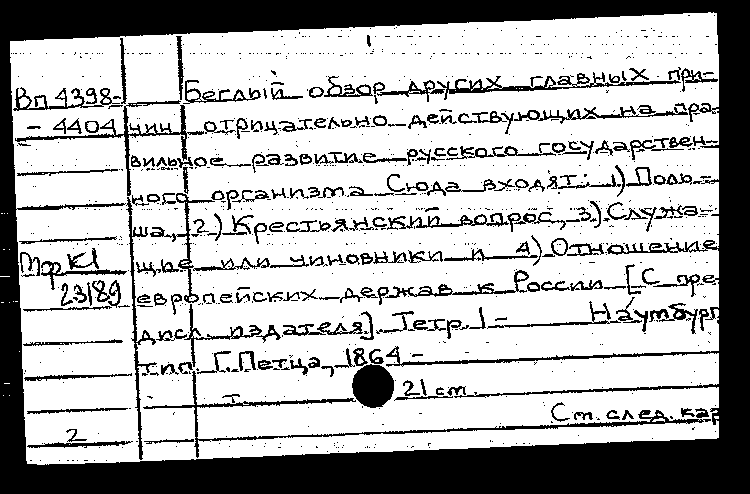 Вп 4398- Беглый обзор других главных при-
- 4404 чин отрицательно действующих на пра-
вильное развитие русского государствен-
ного организма Сюда входят: 1) Поль-
ша, 2) Крестьянский вопрос, 3) Служа-
Мор К1 щие или чиновники и 4) Отношение
23/89 европейских держав к России [С пре-
дисл. издателя]. Тетр. 1 - Наумбург,
тип. Г. Петца, 1864 -
т. 21 см.
См. след. кар
2